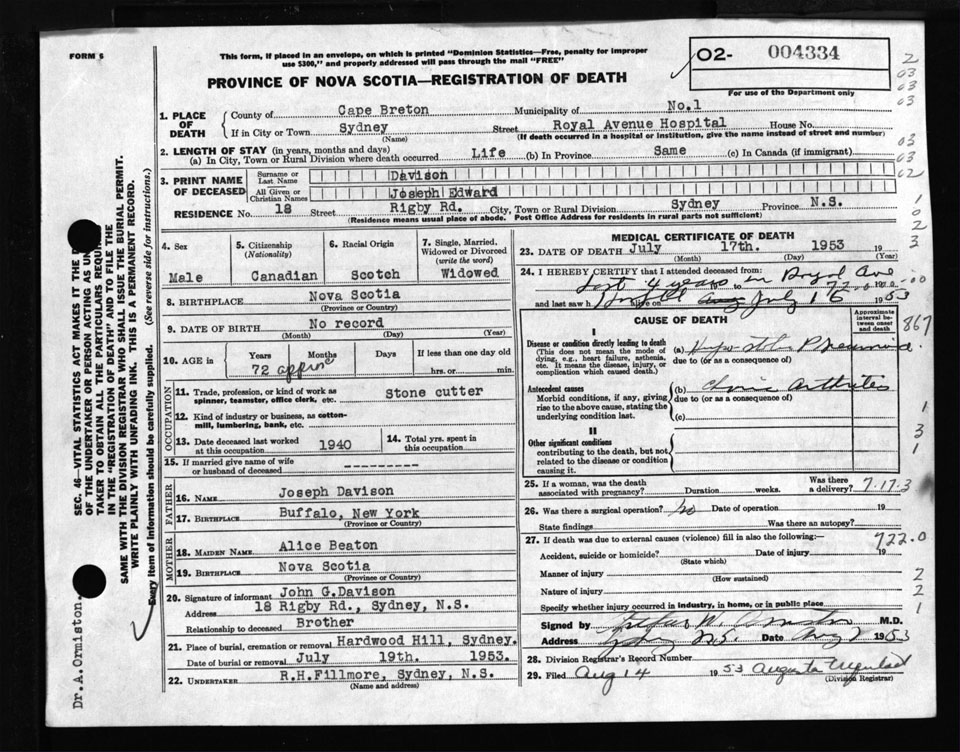 FORM 6
This form, if placed in an envelope, on which is printed "Dominion Statistics—Free, penalty for improper
use $300," and properly addressed will pass through the mail "FREE"
PROVINCE OF NOVA SCOTIA—REGISTRATION OF DEATH
O2- 004334
For use of the Department only
1. PLACE OF DEATH
County of Cape Breton Municipality of No.1
If in City or Town Sydney Street Royal Avenue Hospital House No.
(Name) (If death occurred in a hospital or institution, give the name instead of street and number)
2. LENGTH OF STAY (in years, months and days)
(a) In City, Town or Rural Division where death occurred Life (b) In Province Same (c) In Canada (if immigrant)
3. PRINT NAME OF DECEASED
Surname or Last Name Davison
All Given or Christian Names Joseph Edward
RESIDENCE No. 18 Street Rigby Rd. City, Town or Rural Division Sydney Province N.S.
(Residence means usual place of abode. Post Office Address for residents in rural parts not sufficient)
4. Sex Male
5. Citizenship (Nationality) Canadian
6. Racial Origin Scotch
7. Single, Married, Widowed or Divorced (write the word) Widowed
8. BIRTHPLACE Nova Scotia
(Province or Country)
9. DATE OF BIRTH No record
(Month) (Day) (Year)
10. AGE in Years Months Days If less than one day old
72 approx hrs. or min.
OCCUPATION
11. Trade, profession, or kind of work as spinner, teamster, office clerk, etc. Stone cutter
12. Kind of industry or business, as cotton-mill, lumbering, bank, etc.
13. Date deceased last worked at this occupation 1940
14. Total yrs. spent in this occupation
15. If married give name of wife or husband of deceased ----------
FATHER
16. NAME Joseph Davison
17. BIRTHPLACE Buffalo, New York
(Province or Country)
MOTHER
18. MAIDEN NAME Alice Beaton
19. BIRTHPLACE Nova Scotia
(Province or Country)
20. Signature of informant John G.Davison
Address 18 Rigby Rd., Sydney, N.S.
Relationship to deceased Brother
21. Place of burial, cremation or removal Hardwood Hill, Sydney.
Date of burial or removal July 19th. 1953.
22. UNDERTAKER R.H.Fillmore, Sydney, N.S.
(Name and address)
MEDICAL CERTIFICATE OF DEATH
23. DATE OF DEATH July 17th. 1953 19
(Month) (Day) (Year)
24. I HEREBY CERTIFY that I attended deceased from: Royal Ave
last 4 years to
and last saw h alive on July 16 1953
CAUSE OF DEATH
Approximate interval between onset and death
I
Disease or condition directly leading to death
(This does not mean the mode of dying, e.g., heart failure, asthenia, etc. It means the disease, injury, or complication which caused death.)
(a) Hypostatic Pneumonia
due to (or as a consequence of)
Antecedent causes
Morbid conditions, if any, giving rise to the above cause, stating the underlying condition last.
(b) Chronic Arthritis
due to (or as a consequence of)
(c)
II
Other significant conditions
contributing to the death, but not related to the disease or condition causing it.
25. If a woman, was the death associated with pregnancy? Duration weeks. Was there a delivery? 7-17-3
26. Was there a surgical operation? No Date of operation 19
State findings Was there an autopsy?
27. If death was due to external causes (violence) fill in also the following:— 722.0
Accident, suicide or homicide? Date of injury 19
(State which)
Manner of injury
(How sustained)
Nature of injury
Specify whether injury occurred in industry, in home, or in public place
Signed by M.D.
Address Sydney N.S. Date Aug 1953
28. Division Registrar's Record Number
29. Filed Aug 14 1953 Augusta
(Division Registrar)
SEC. 46—VITAL STATISTICS ACT MAKES IT THE
OF THE UNDERTAKER OR PERSON ACTING AS UN
TAKER TO OBTAIN ALL THE PARTICULARS REQUIR
IN THE "REGISTRATION OF DEATH" AND TO FILE THE
SAME WITH THE DIVISION REGISTRAR WHO SHALL ISSUE THE BURIAL PERMIT.
WRITE PLAINLY WITH UNFADING INK. THIS IS A PERMANENT RECORD.
Every item of Information should be carefully supplied. (See reverse side for instructions.)
Dr.A.Ormiston.
2
03
03
03
03
03
02
1
0
2
3
867
1
3
1
2
2
1